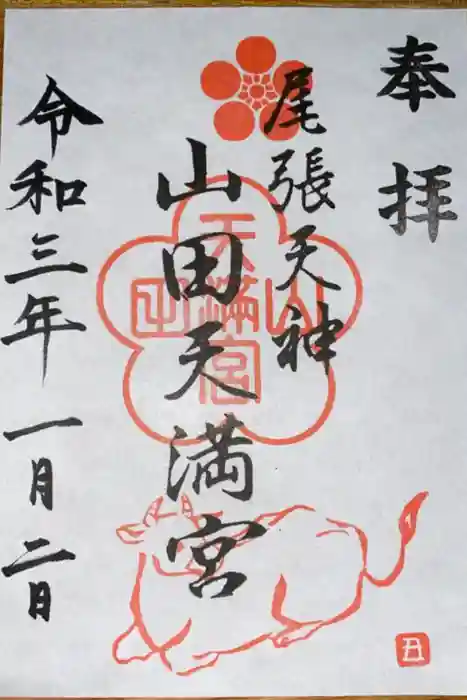 奉拝
尾張天神
山田天満宮
令和三年一月二日
山田
天満宮
丑